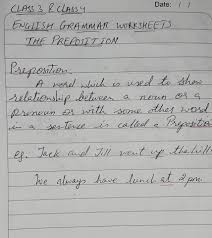 CLASS 3 & CLASS 4
Date: / /
ENGLISH GRAMMAR WORKSHEETS
THE PREPOSITION
Preposition.
A word which is used to show
relationship between a noun or a
pronoun or with some other word
in a sentence is called a Preposition
eg. Jack and Jill went up the hill.
We always have lunch at 2 pm